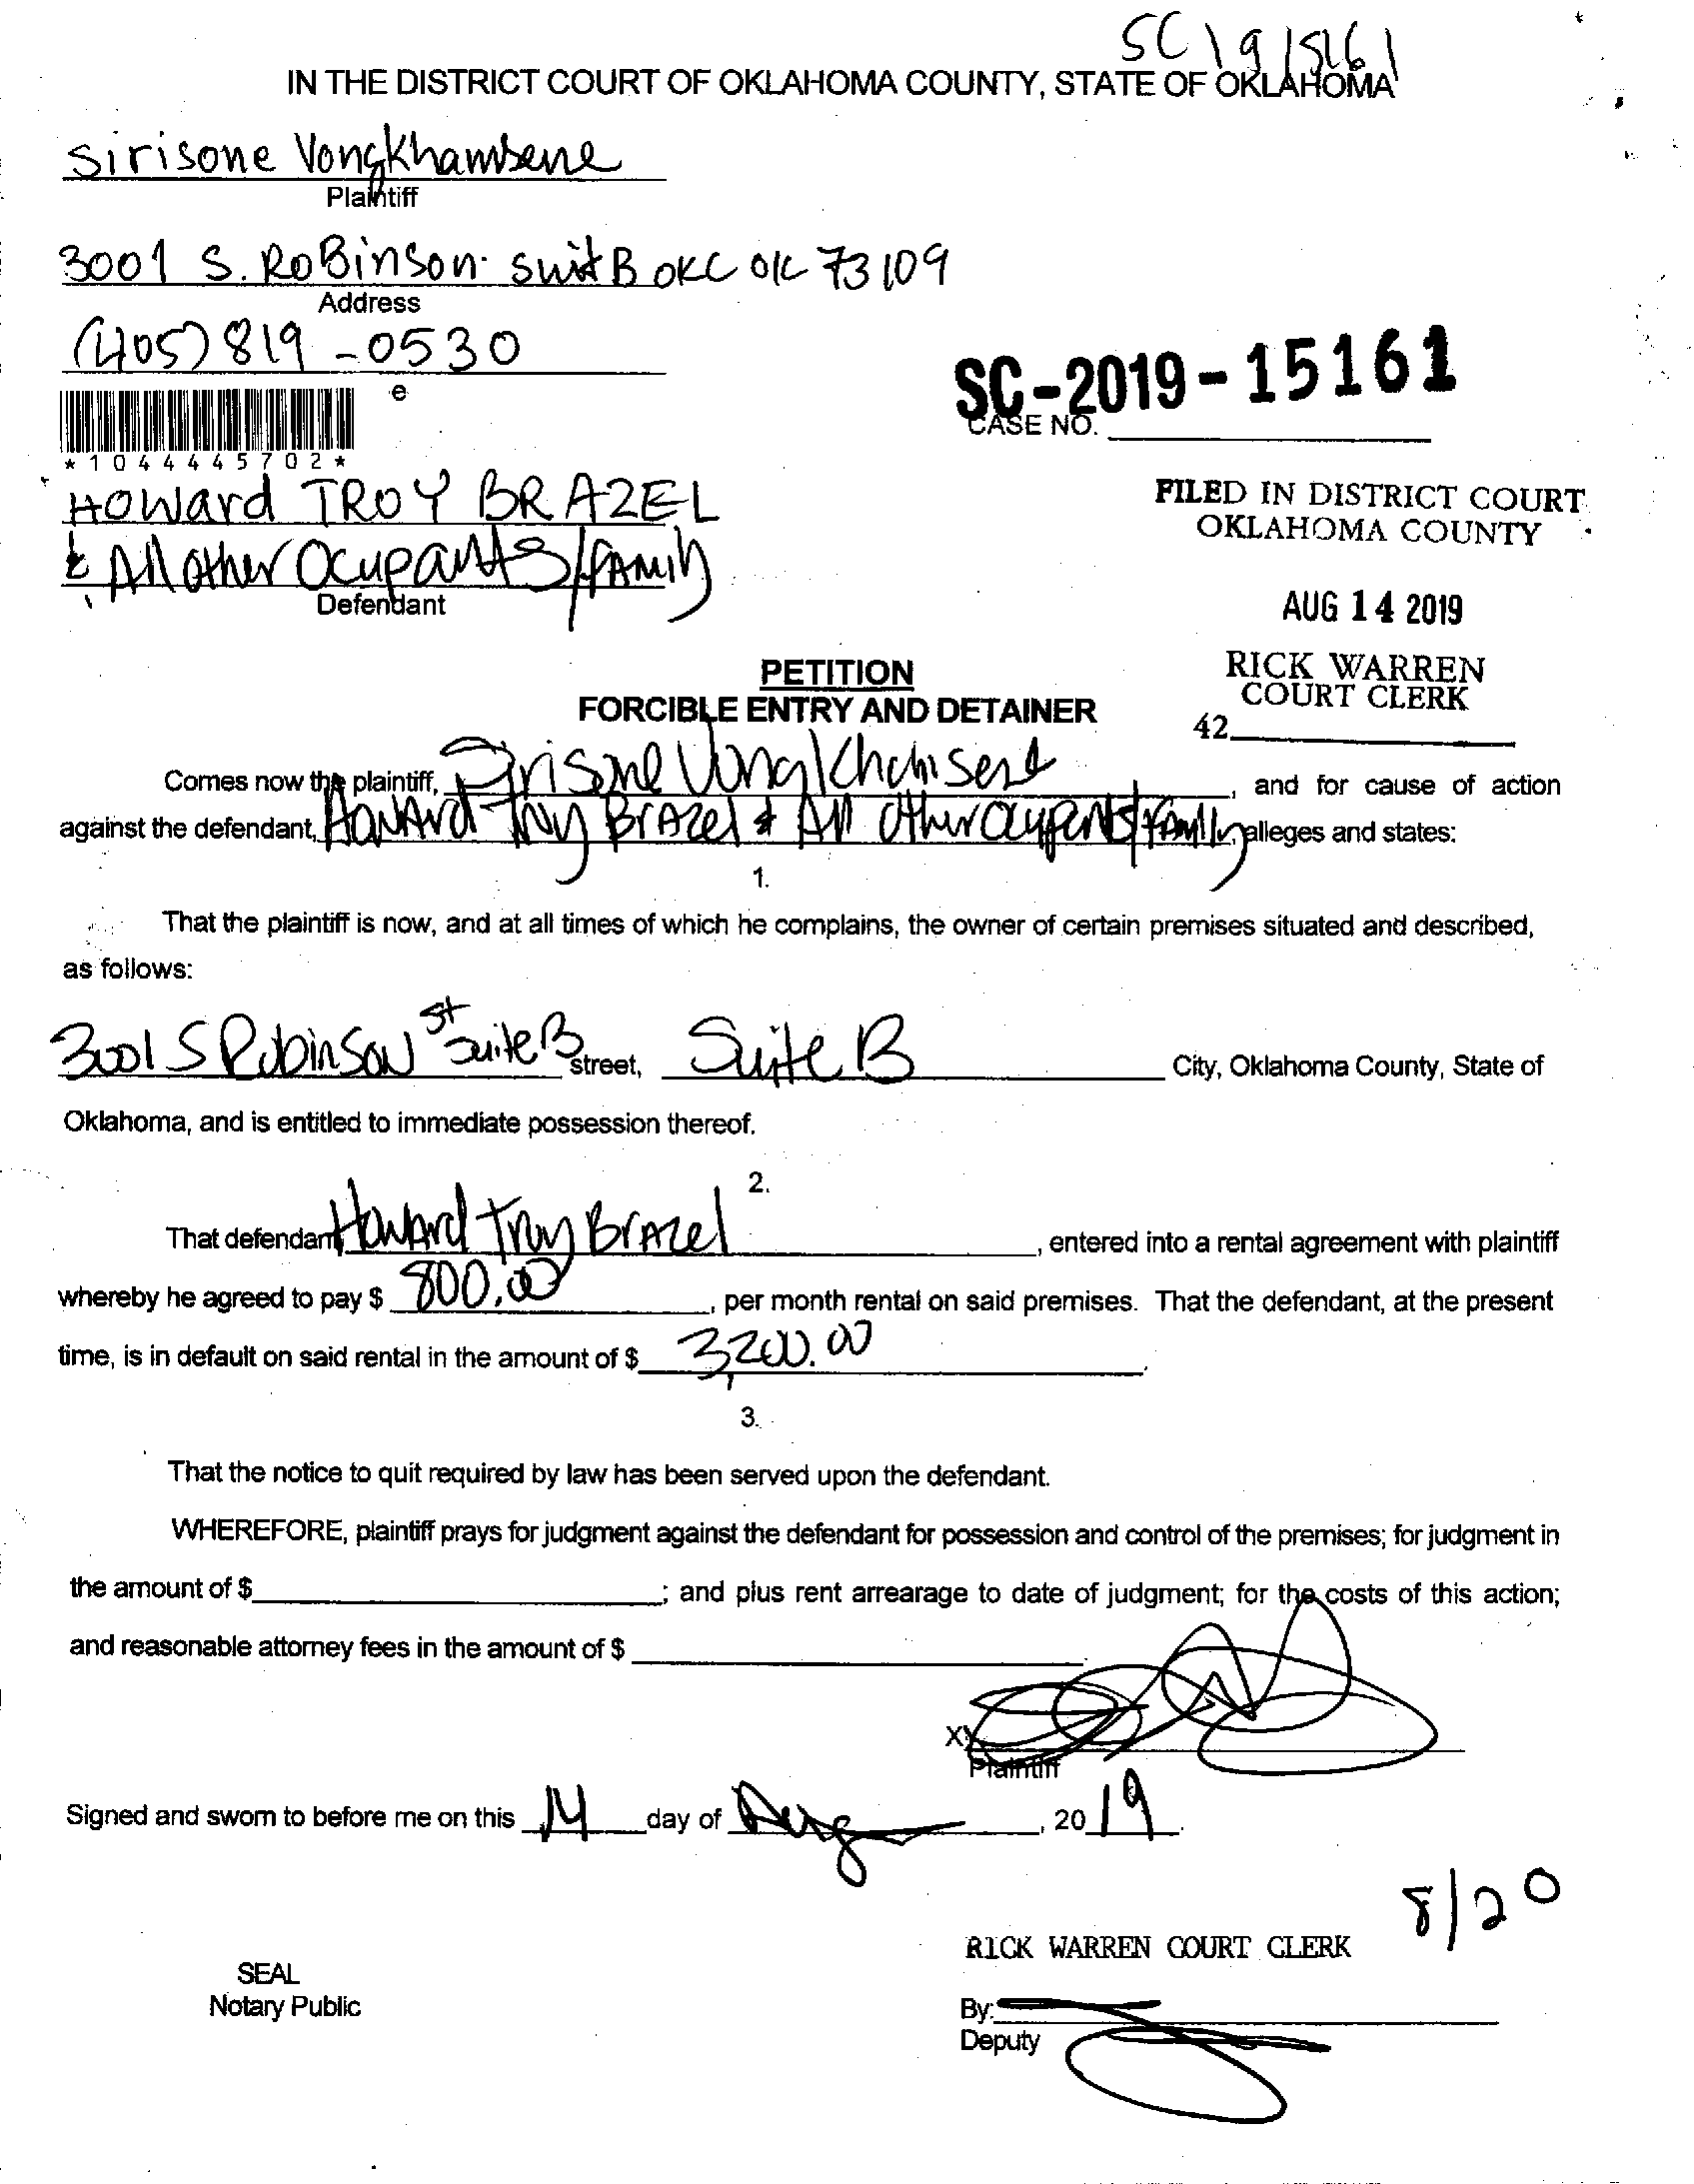 SC1915161
IN THE DISTRICT COURT OF OKLAHOMA COUNTY, STATE OF OKLAHOMA
Sirisone Vongkhamsene
Plaintiff
3001 S. RoBinson Suit B OKC OK 73109
Address
(405) 819-0530
e
SC-2019-15161
CASE NO.
*1044445702*
Howard TROY BRAZEL
& All other Ocupants/family
Defendant
FILED IN DISTRICT COURT
OKLAHOMA COUNTY
AUG 14 2019
RICK WARREN
COURT CLERK
42
PETITION
FORCIBLE ENTRY AND DETAINER
Comes now the plaintiff, Sirisone Vongkhamsene, and for cause of action
against the defendant, Howard Troy Brazel & All other Ocupants/family, alleges and states:
1.
That the plaintiff is now, and at all times of which he complains, the owner of certain premises situated and described,
as follows:
3001 S Robinson St Suite B street, Suite B City, Oklahoma County, State of
Oklahoma, and is entitled to immediate possession thereof.
2.
That defendant Howard Troy Brazel, entered into a rental agreement with plaintiff
whereby he agreed to pay $ 800.00, per month rental on said premises. That the defendant, at the present
time, is in default on said rental in the amount of $ 3,200.00.
3.
That the notice to quit required by law has been served upon the defendant.
WHEREFORE, plaintiff prays for judgment against the defendant for possession and control of the premises; for judgment in
the amount of $; and plus rent arrearage to date of judgment; for the costs of this action;
and reasonable attorney fees in the amount of $
X
Plaintiff
Signed and sworn to before me on this 14 day of Aug, 2019.
8/20
RICK WARREN COURT CLERK
SEAL
Notary Public
By:
Deputy